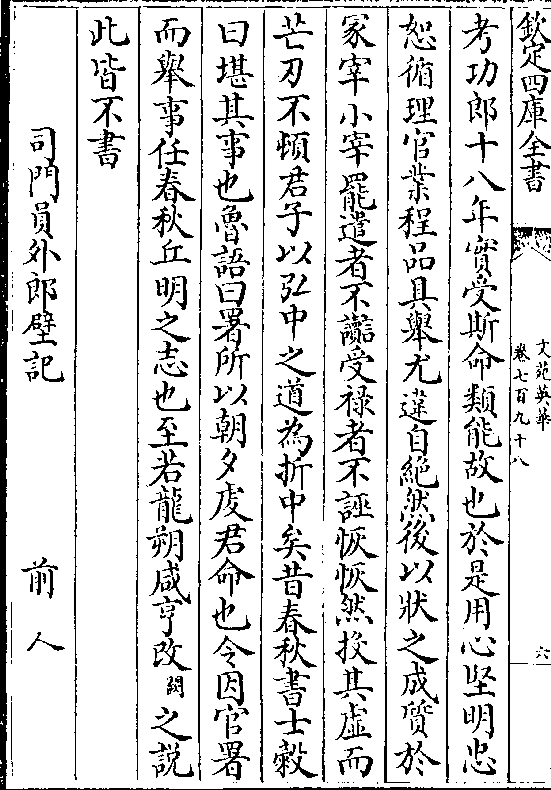 欽定四庫全書
文苑英華
卷七百九十八
六
考功郎十八年實受斯命類能故也於是用心堅明忠
恕循理官業程品具舉尤違自絶然後以狀之成質於
冢宰小宰罷遣者不讟受禄者不誣恢恢然投其虚而
芒刃不頓君子以弘中之道為折中矣昔春秋書士縠
曰堪其事也魯語曰署所以朝夕䖍君命也今因官署
而舉事任春秋丘明之志也至若龍朔咸亨改闕之説
此皆不書
司門員外郎壁記 前人